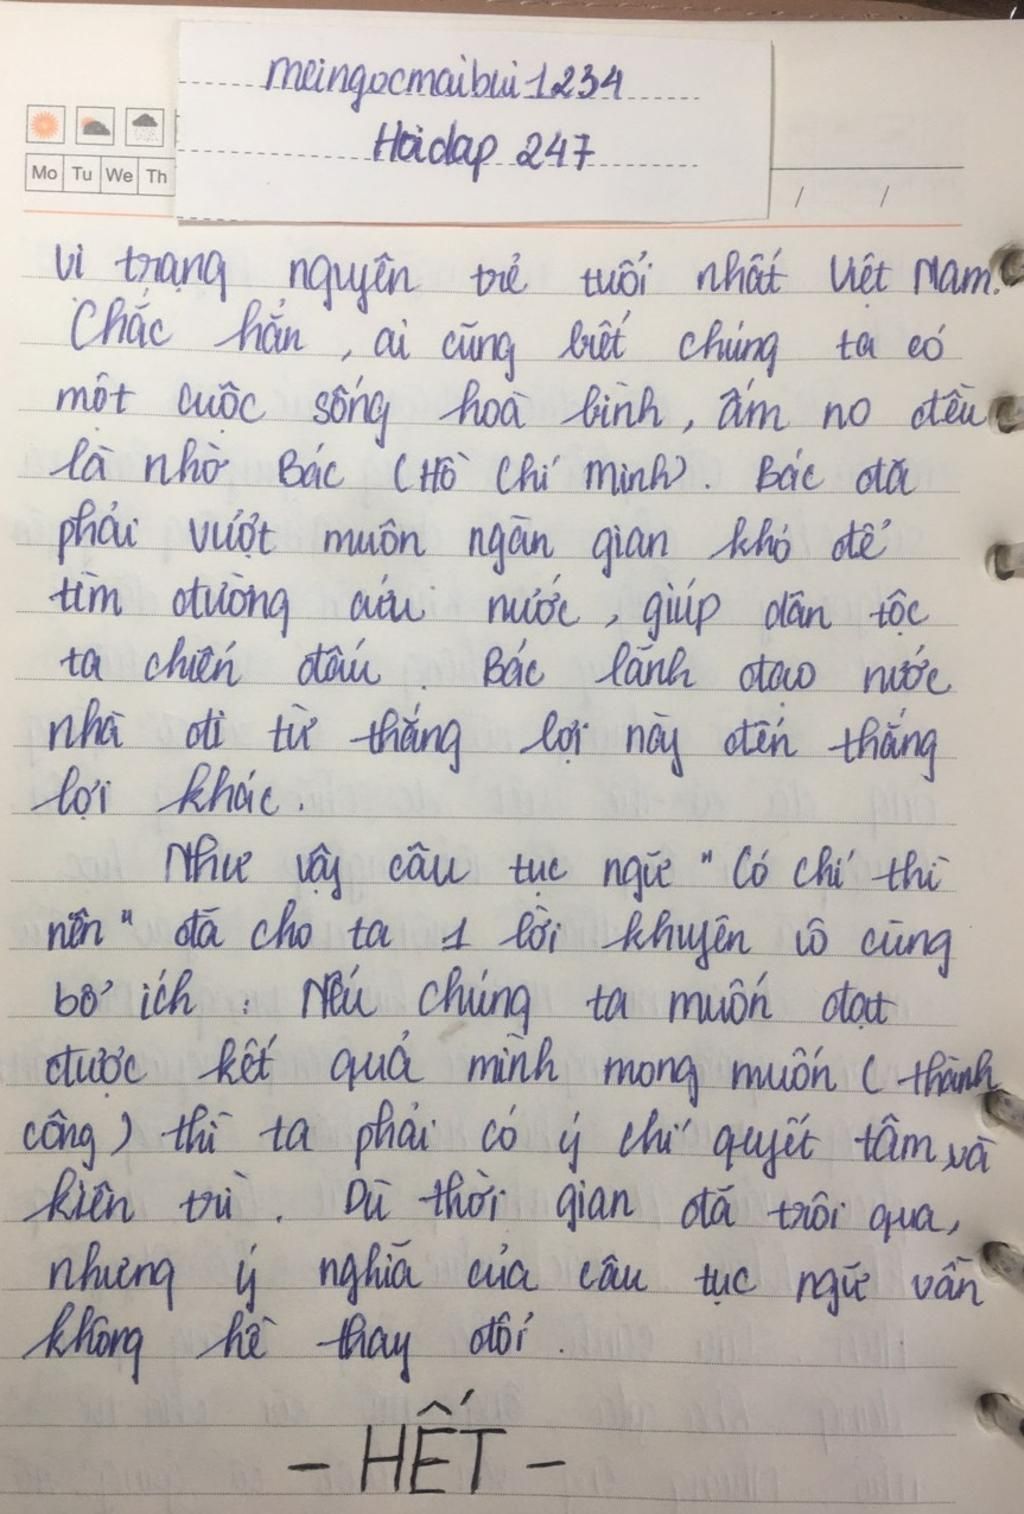 meingocmaibui1234
Hoidap 247
Mo Tu We Th
/ /
vì trạng nguyên trẻ tuổi nhất Việt Nam.
Chắc hẳn, ai cũng biết chúng ta có
một cuộc sống hoà bình, ấm no đều
là nhờ Bác (Hồ Chí Minh). Bác đã
phải vượt muôn ngàn gian khó để
tìm đường cứu nước, giúp dân tộc
ta chiến đấu. Bác lãnh đạo nước
nhà đi từ thắng lợi này đến thắng
lợi khác.
Như vậy câu tục ngữ "Có chí thì
nên" đã cho ta 1 lời khuyên vô cùng
bổ ích: Nếu chúng ta muốn đạt
được kết quả mình mong muốn (thành
công) thì ta phải có ý chí quyết tâm và
kiên trì. Dù thời gian đã trôi qua,
nhưng ý nghĩa của câu tục ngữ vẫn
không hề thay đổi.
- HẾT -